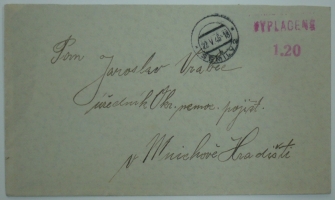 VYPLACENO
1.20
Pan
Jaroslav Vrabec
úředník Okr. nemoc. pojišť.
v Mnichově Hradišti